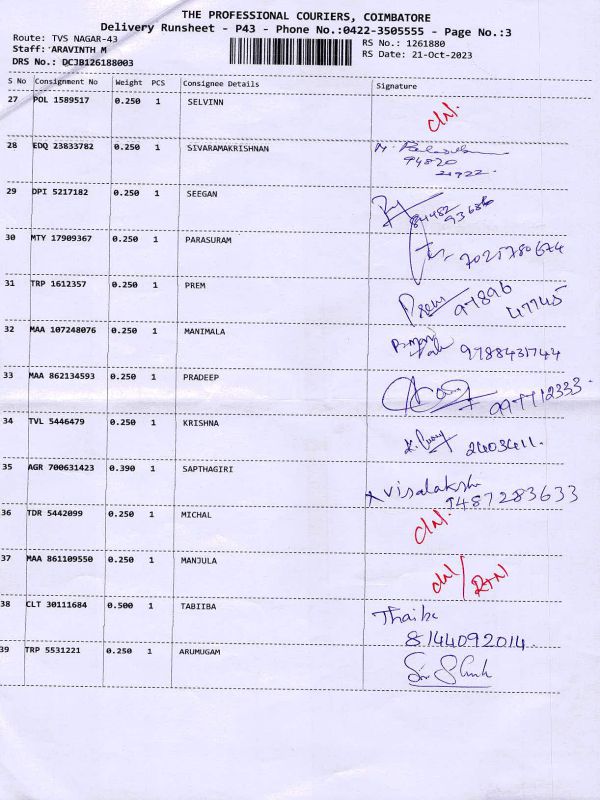 THE PROFESSIONAL COURIERS, COIMBATORE
Delivery Runsheet - P43 - Phone No.:0422-3505555 - Page No.:3
Route: TVS NAGAR-43 RS No.: 1261880
Staff: ARAVINTH M RS Date: 21-Oct-2023
DRS No.: DCJB126188003
S No Consignment No Weight PCS Consignee Details Signature
27 POL 1589517 0.250 1 SELVINN
28 EDQ 23833782 0.250 1 SIVARAMAKRISHNAN
94820
29 DPI 5217182 0.250 1 SEEGAN
84482
93686
30 MTY 17909367 0.250 1 PARASURAM
7025780674
31 TRP 1612357 0.250 1 PREM Prem 97896
47745
32 MAA 107248076 0.250 1 MANIMALA
9788431744
33 MAA 862134593 0.250 1 PRADEEP
34 TVL 5446479 0.250 1 KRISHNA
2403411.
35 AGR 700631423 0.390 1 SAPTHAGIRI
Visalakshi
9487283633
36 TDR 5442099 0.250 1 MICHAL
37 MAA 861109550 0.250 1 MANJULA
38 CLT 30111684 0.500 1 TABIIBA
8144092014.
39 TRP 5531221 0.250 1 ARUMUGAM